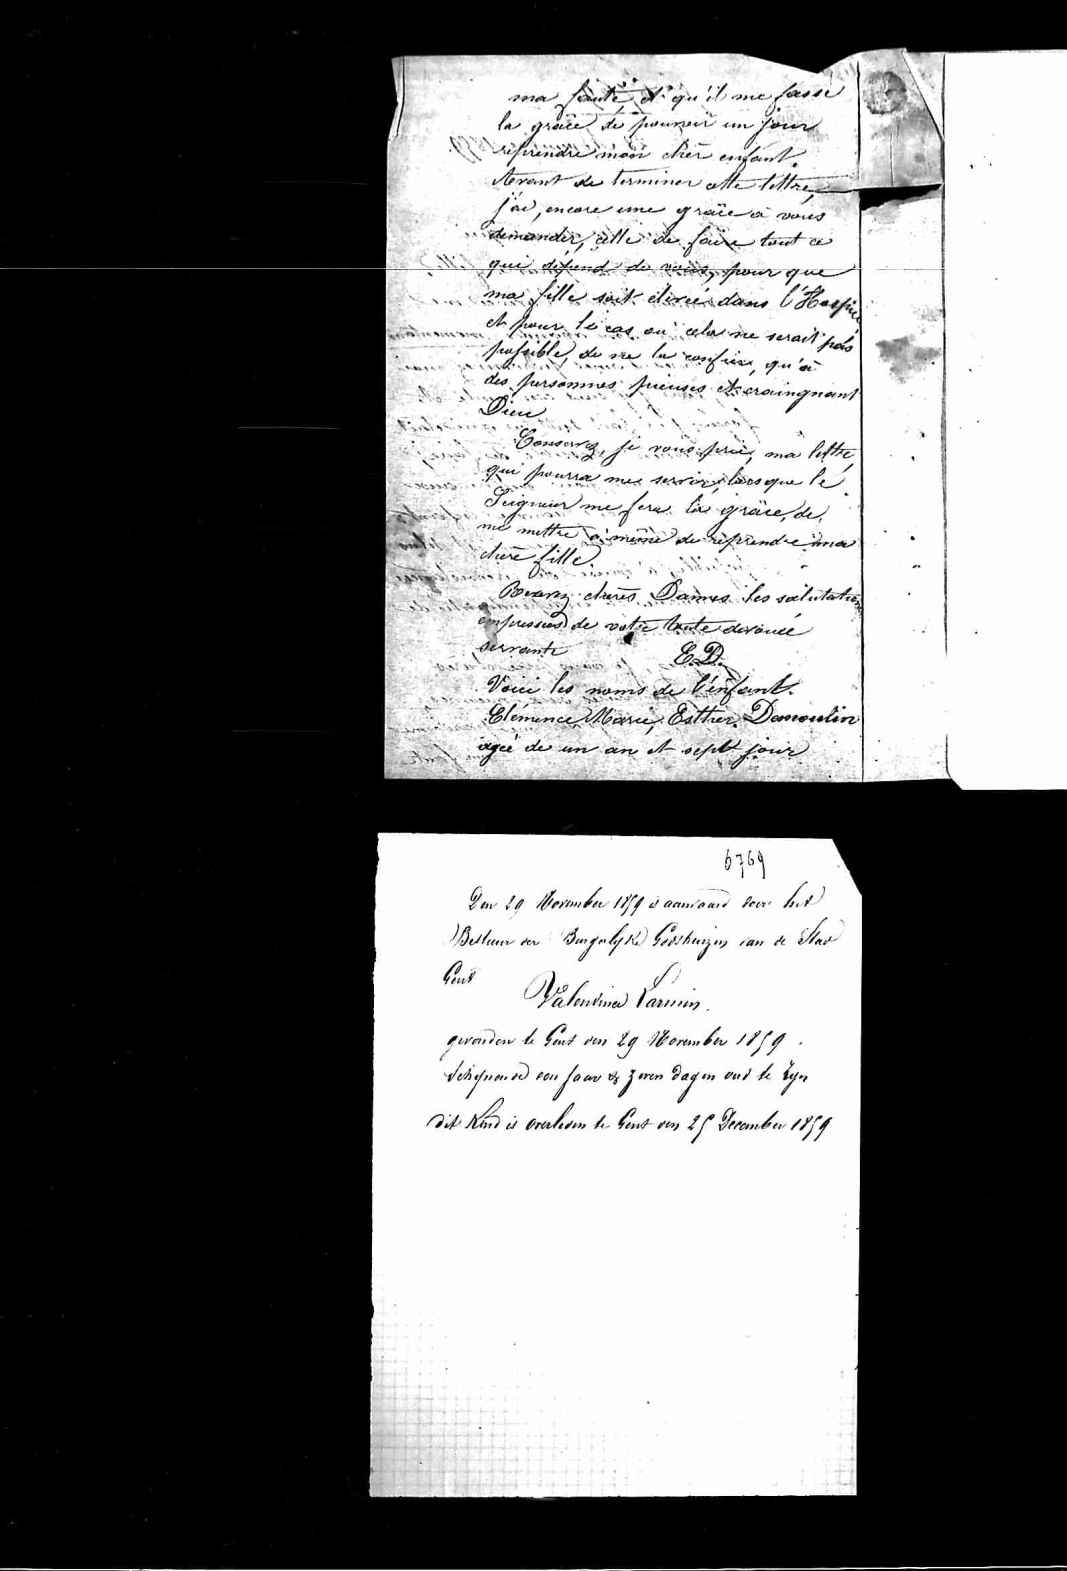 ma faute, et qu'il me fasse
la grâce de pouvoir un jour
reprendre mon cher enfant.
Avant de terminer cette lettre,
j'ai, encore une grâce à vous
demander, celle de faire tout ce
qui dépend de vous, pour que
ma fille soit élevée dans l'Hospice
et pour le cas où cela ne serait pas
possible, de ne la confier, qu'à
des personnes pieuses et craingnant
Dieu
Conservez, je vous prie, ma lettre
qui pourra me servir, lorsque le
Seigneur me fera la grâce, de
me mettre à même de reprendre ma
chère fille
Recevez chères Dames les salutations
empressées de votre toute dévouée
servante E.D.
Voici les noms de l'enfant.
Clémence Marie, Esther. Damoulin
agée de un an et sept jour
6769
Den 29 November 1859 is aanvaard door het
Bestuur der Burgerlyke Godshuizen van de Stad
Gent
Valentina
gevonden te Gent den 29 November 1859.
Schynende een jaar & zeven dagen oud te zyn
dit Kind is overleden te Gent den 25 December 1859